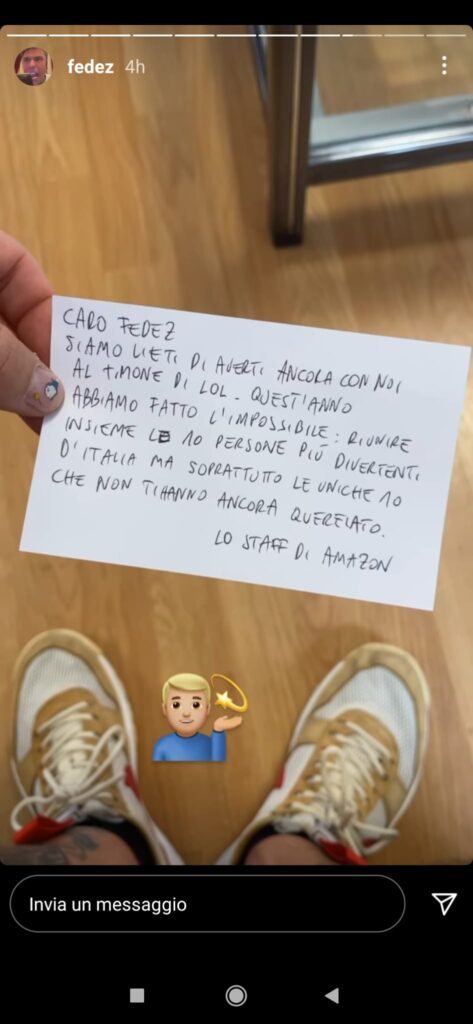 fedez 4h
CARO FEDEZ
SIAMO LIETI DI AVERTI ANCORA CON NOI
AL TIMONE DI LOL. QUEST'ANNO
ABBIAMO FATTO L'IMPOSSIBILE: RIUNIRE
INSIEME LE 10 PERSONE PIÙ DIVERTENTI
D'ITALIA MA SOPRATTUTTO LE UNICHE 10
CHE NON TI HANNO ANCORA QUERELATO.
LO STAFF DI AMAZON
Invia un messaggio